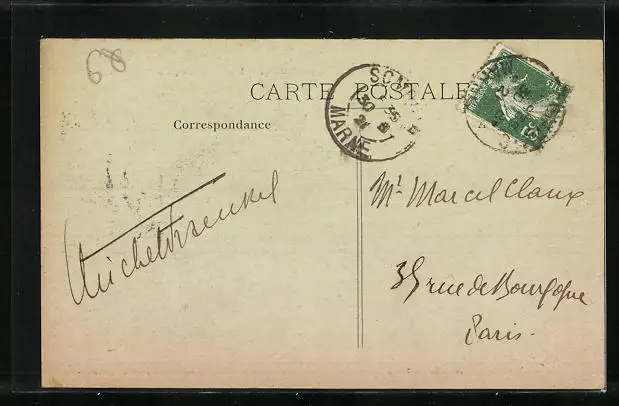 68
CARTE POSTALE
SOM
MARNE
Correspondance
Mr. Marcel Claux
35 rue de Bourgogne
Paris.